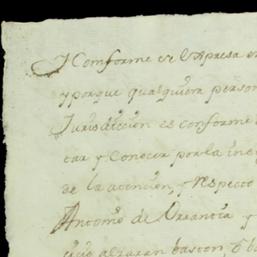 Y Comforme se Expresa e
y porque qualquiera person
Jurisdiccion es conforme
tar y Conocer por la ine
de la atencion, y respecto
Antonio de Urrantia y
alzaran baston o b